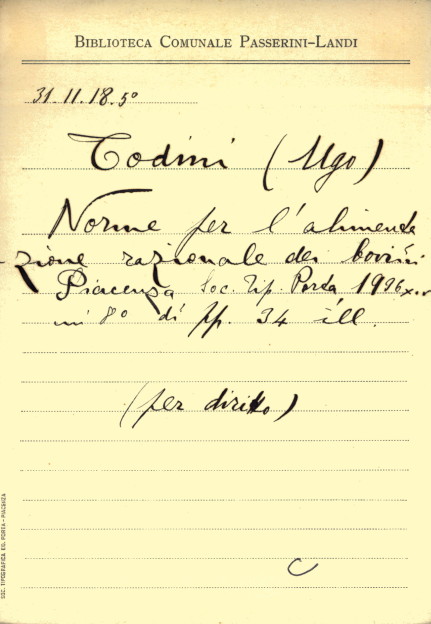 BIBLIOTECA COMUNALE PASSERINI-LANDI
31.11.18.5º
Todini (Ugo)
Norme per l'alimenta
-zione razionale dei bovini
Piacenza Soc. Tip. Porta 1936 XIV
in 8º di pp. 34 ill.
(per diritto)
C
SOC. TIPOGRAFICA ED. PORTA - PIACENZA